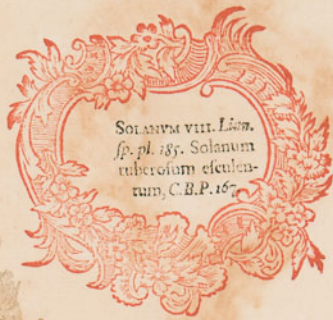 SOLANVM VIII. Linn.
ſp. pl. 185. Solanum
tuberoſum eſculen-
tum, C.B.P. 167.